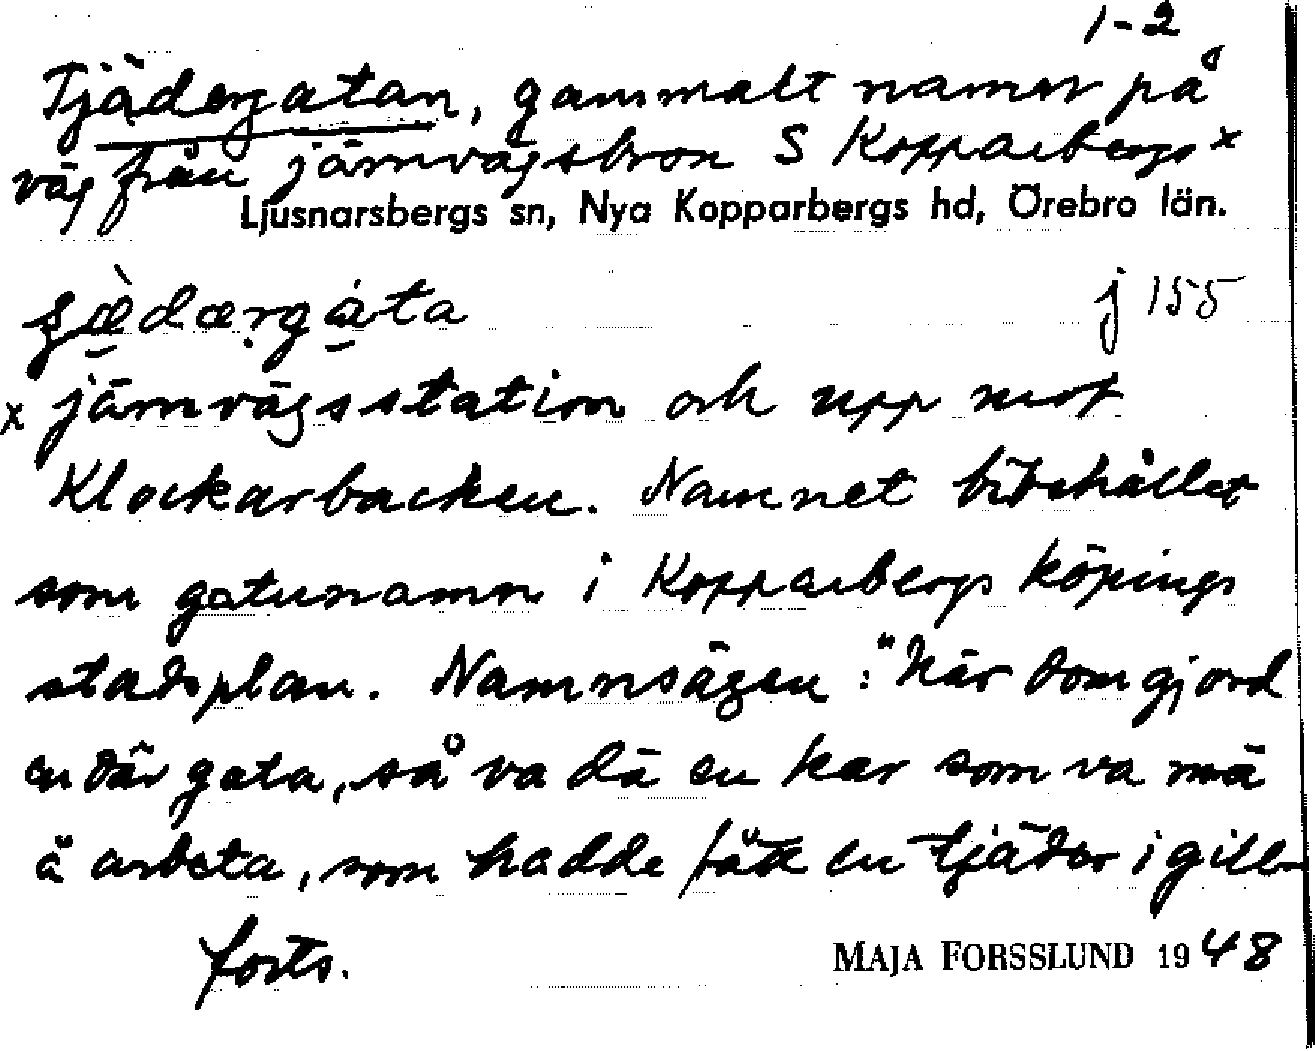 1-2
Tjädergatan, gammalt namn på
väg från järnvägsbron S Kopparbergs x
Ljusnarsbergs sn, Nya Kopparbergs hd, Örebro län.
j 155
x järnvägsstation och upp mot
Klockarbacken. Namnet bibehållet
som gatunamn i Kopparbergs köpings
stadsplan. Namnsägen: "När dom gjord
en där gata, så va dä en kar som va mä
å arbeta, som hadde fått en tjäder i gill-
forts.
MAJA FORSSLUND 1948